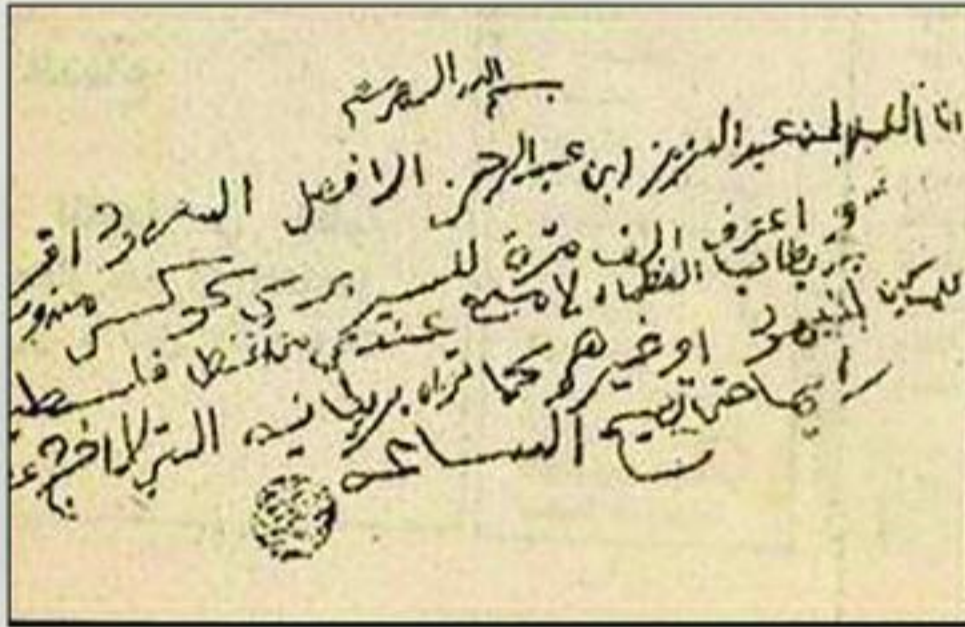 بسم الله الرحمن الرحيم
انا السلطان عبد العزيز ابن عبد الرحمن ال افصل السعود اقر
و اعترف الف مرة للسر برسي كوكس مندوب
بريطانيا العظماء لا مانع عندي من افضل فلسطين
للمساكين اليهود او غيرهم كما تراه بريطانيه التي لا اخرج عن
رايها حتا تصيح الساعه